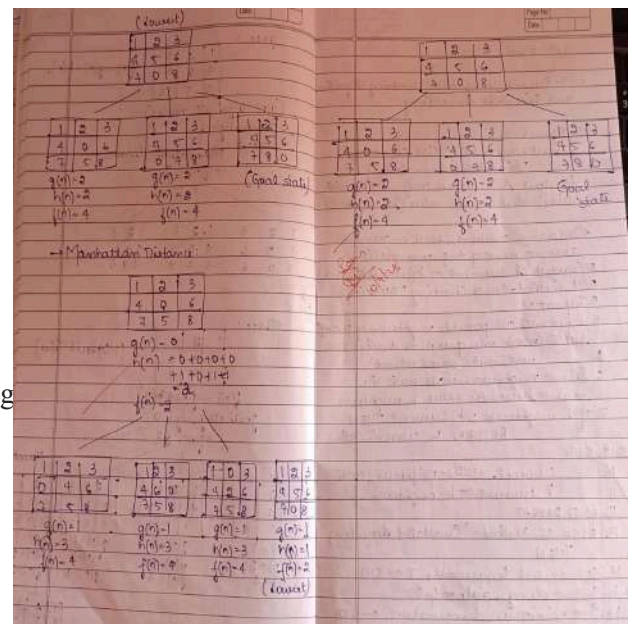 (Lowest)
1 2 3
4 5 6
7 0 8
1 2 3
4 0 6
7 5 8
g(n)=2
h(n)=2
f(n)=4
1 2 3
4 5 6
0 7 8
g(n)=2
h(n)=2
f(n)=4
1 2 3
4 5 6
7 8 0
(Goal state)
→ Manhattan Distance:
1 2 3
4 0 6
7 5 8
g(n) = 0
h(n) = 0+0+0+0
+1+0+1+
= 2
f(n) = 2
1 2 3
0 4 6
7 5 8
g(n)=1
h(n)=3
f(n)=4
1 2 3
4 6 0
7 5 8
g(n)=1
h(n)=3
f(n)=4
1 0 3
4 2 6
7 5 8
g(n)=1
h(n)=3
f(n)=4
1 2 3
4 5 6
7 0 8
g(n)=1
h(n)=1
f(n)=2
(Lowest)
g
Page No:
Date:
1 2 3
4 5 6
7 0 8
1 2 3
4 0 6
7 5 8
g(n)=2
h(n)=2
f(n)=4
1 2 3
4 5 6
0 7 8
g(n)=2
h(n)=2
f(n)=4
1 2 3
4 5 6
7 8 0
Goal
state